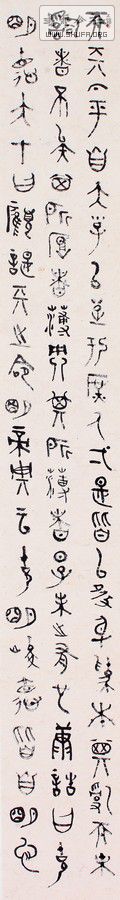 WWW.SHUFA.ORG
而天下平自天子以至於庶人弌是皆以修身為本其亂而末
治者否矣其所厚者薄而其所薄者厚未之有也康誥曰克
明德大甲曰顧諟天之命明帝典曰克明峻德皆自明也